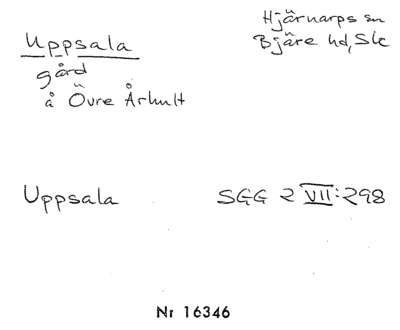 Uppsala
gård
å Övre Århult
Hjärnarps sn
Bjäre hd, Sk
Uppsala SGG 2 VII:298
Nr 16346